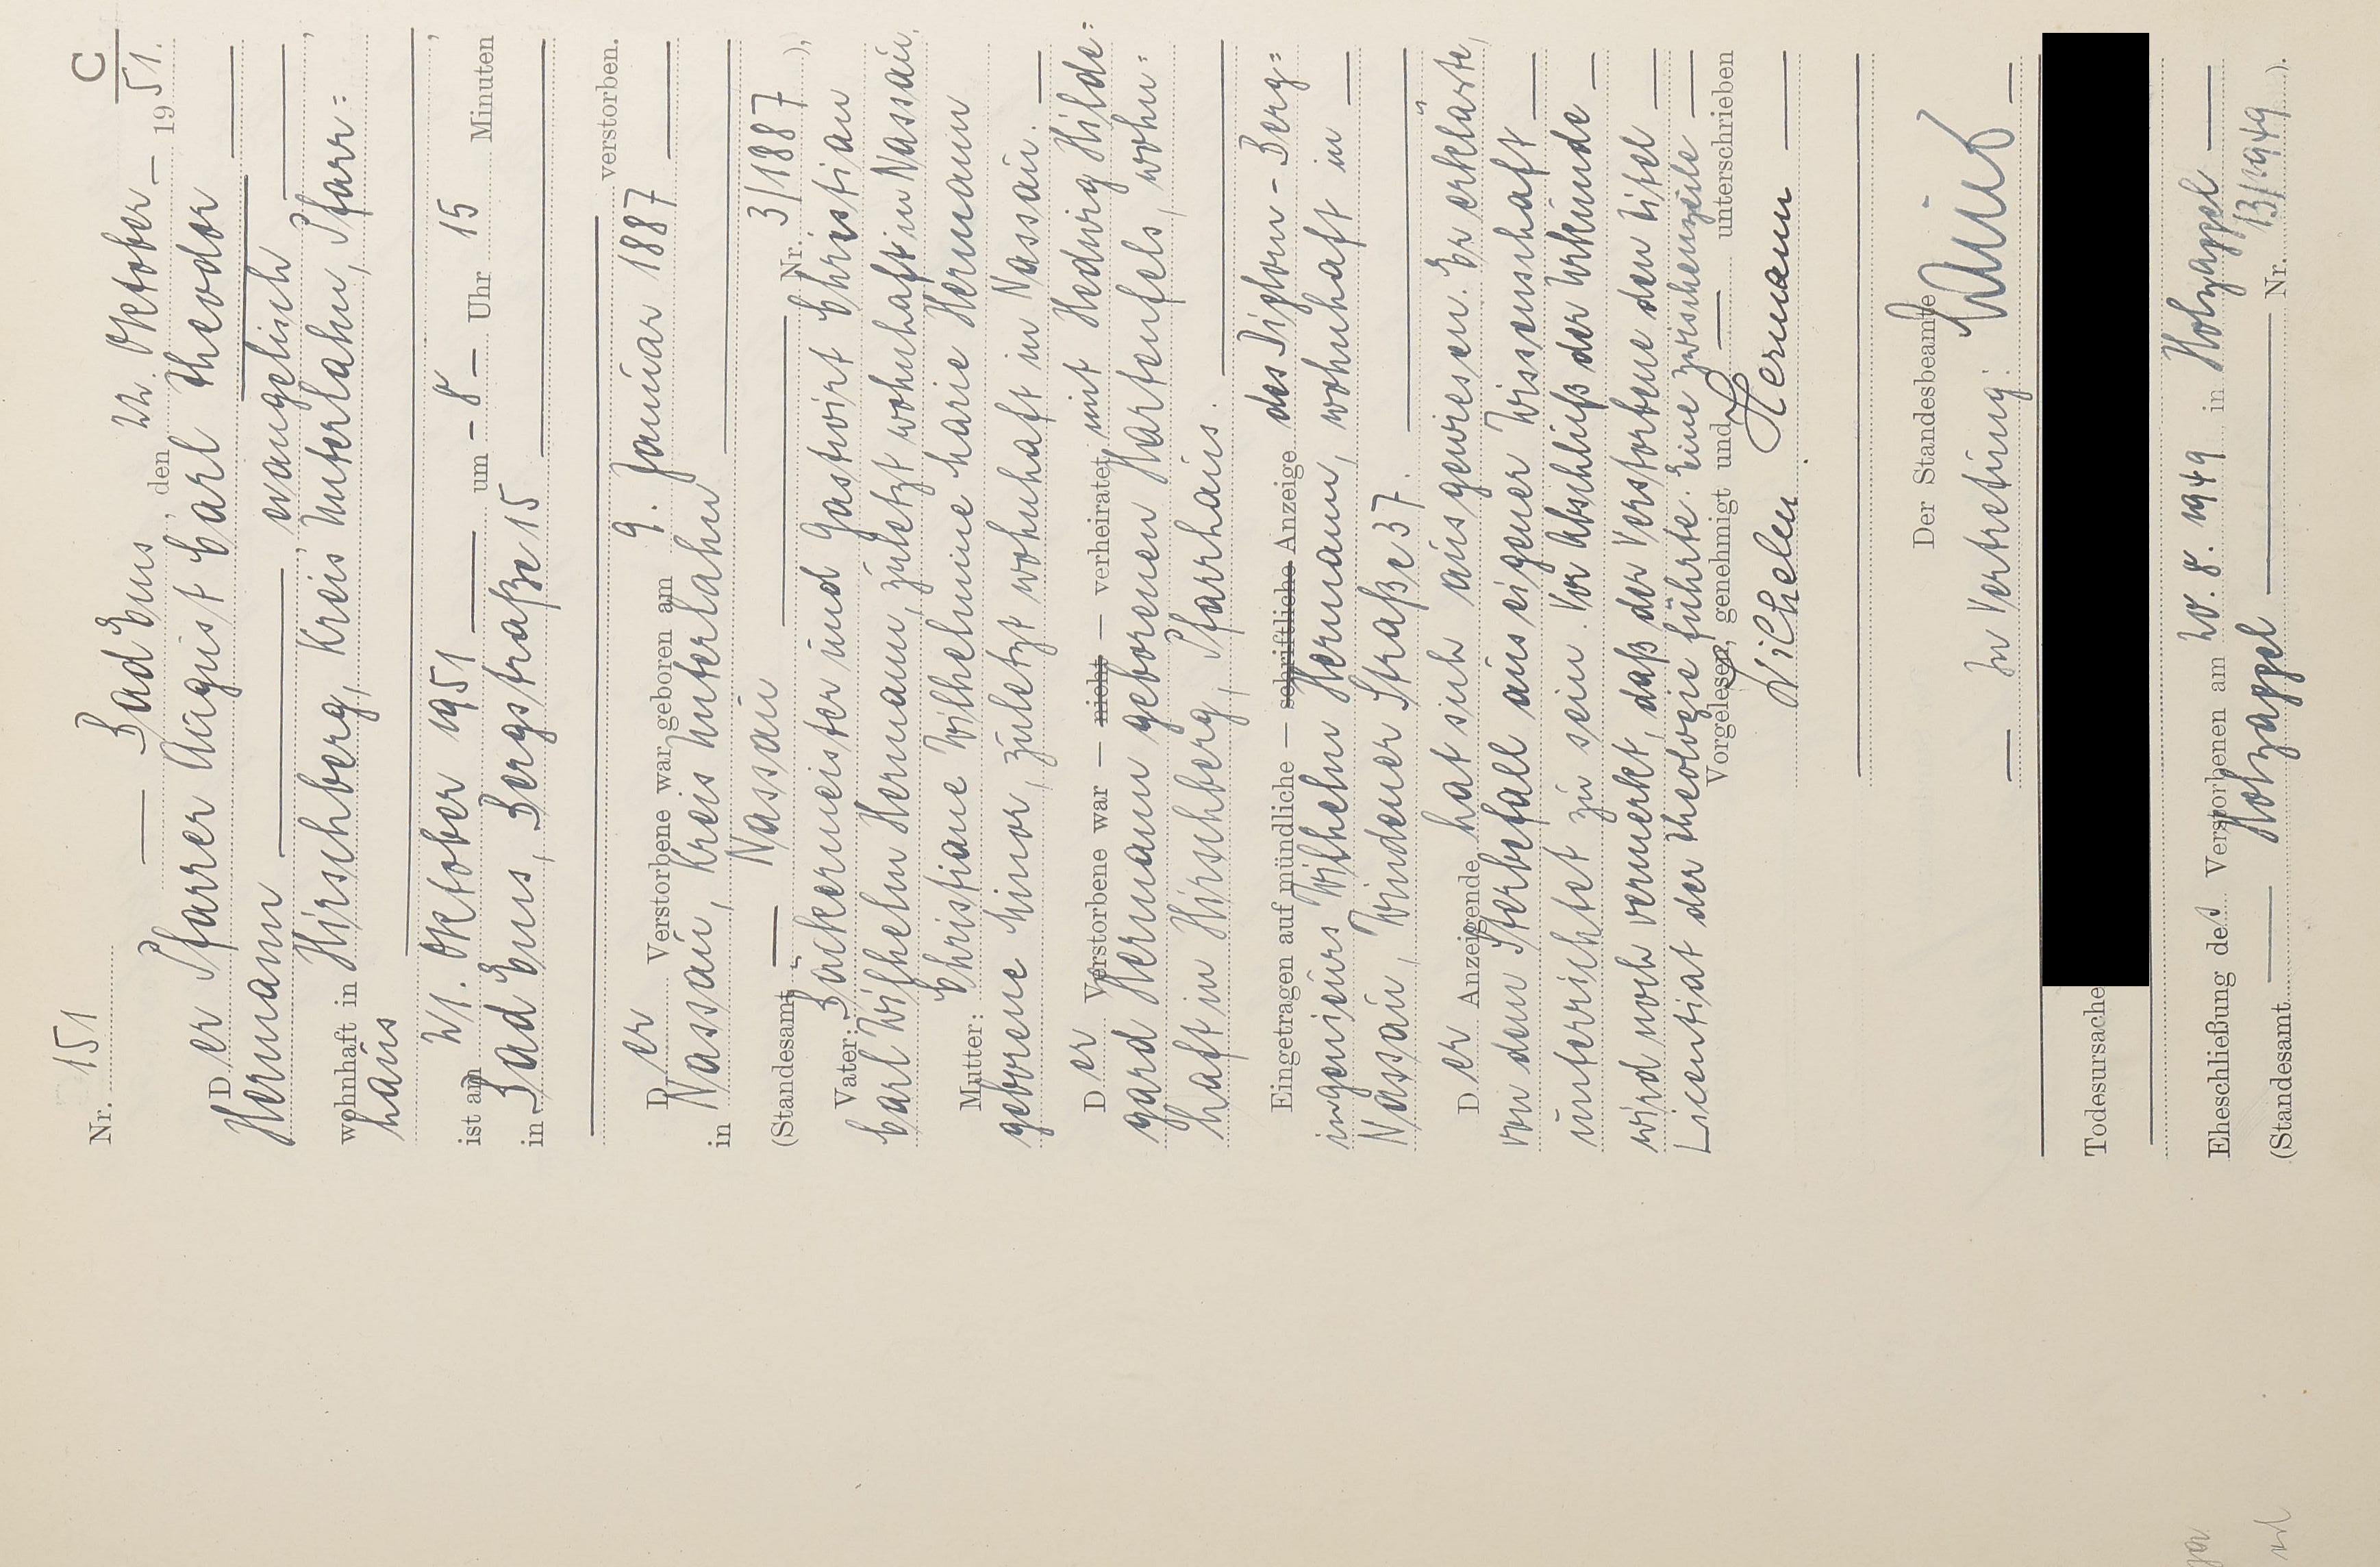 C
Nr. 151
Bad Ems, den 22. Oktober 1951.
Der Pfarrer August Carl Theodor
Hermann, evangelisch,
wohnhaft in Hirschberg, Kreis Unterlahn, Pfarr=
haus,
ist am 21. Oktober 1951 um 8 Uhr 15 Minuten
in Bad Ems, Bergstraße 15
verstorben.
Der Verstorbene war geboren am 9. Januar 1887
in Nassau, Kreis Unterlahn
(Standesamt Nassau Nr. 3/1887),
Vater: Bäckermeister und Gastwirt Christian
Carl Wilhelm Hermann, zuletzt wohnhaft in Nassau.
Mutter: Christiane Wilhelmine Marie Hermann
geborene Minor, zuletzt wohnhaft in Nassau.
Der Verstorbene war — nicht — verheiratet mit Hedwig Hilde=
gard Hermann geborenen Hartenfels, wohn=
haft in Hirschberg, Pfarrhaus.
Eingetragen auf mündliche — schriftliche Anzeige des Diplom-Berg=
ingenieurs Wilhelm Hermann, wohnhaft in
Nassau, Windener Straße 37.
Der Anzeigende hat sich ausgewiesen. Er erklärte,
von dem Sterbefall aus eigener Wissenschaft
unterrichtet zu sein. Vor Abschluß der Urkunde
wird noch vermerkt, daß der Verstorbene den Titel
Licentiat der Theologie führte. Eine Zwischenzeile
Vorgelesen, genehmigt und unterschrieben
Wilhelm Hermann
Der Standesbeamte
In Vertretung:
Todesursache
Eheschließung des Verstorbenen am 20. 8. 1949 in Holzappel
(Standesamt Holzappel Nr. 13/1949).